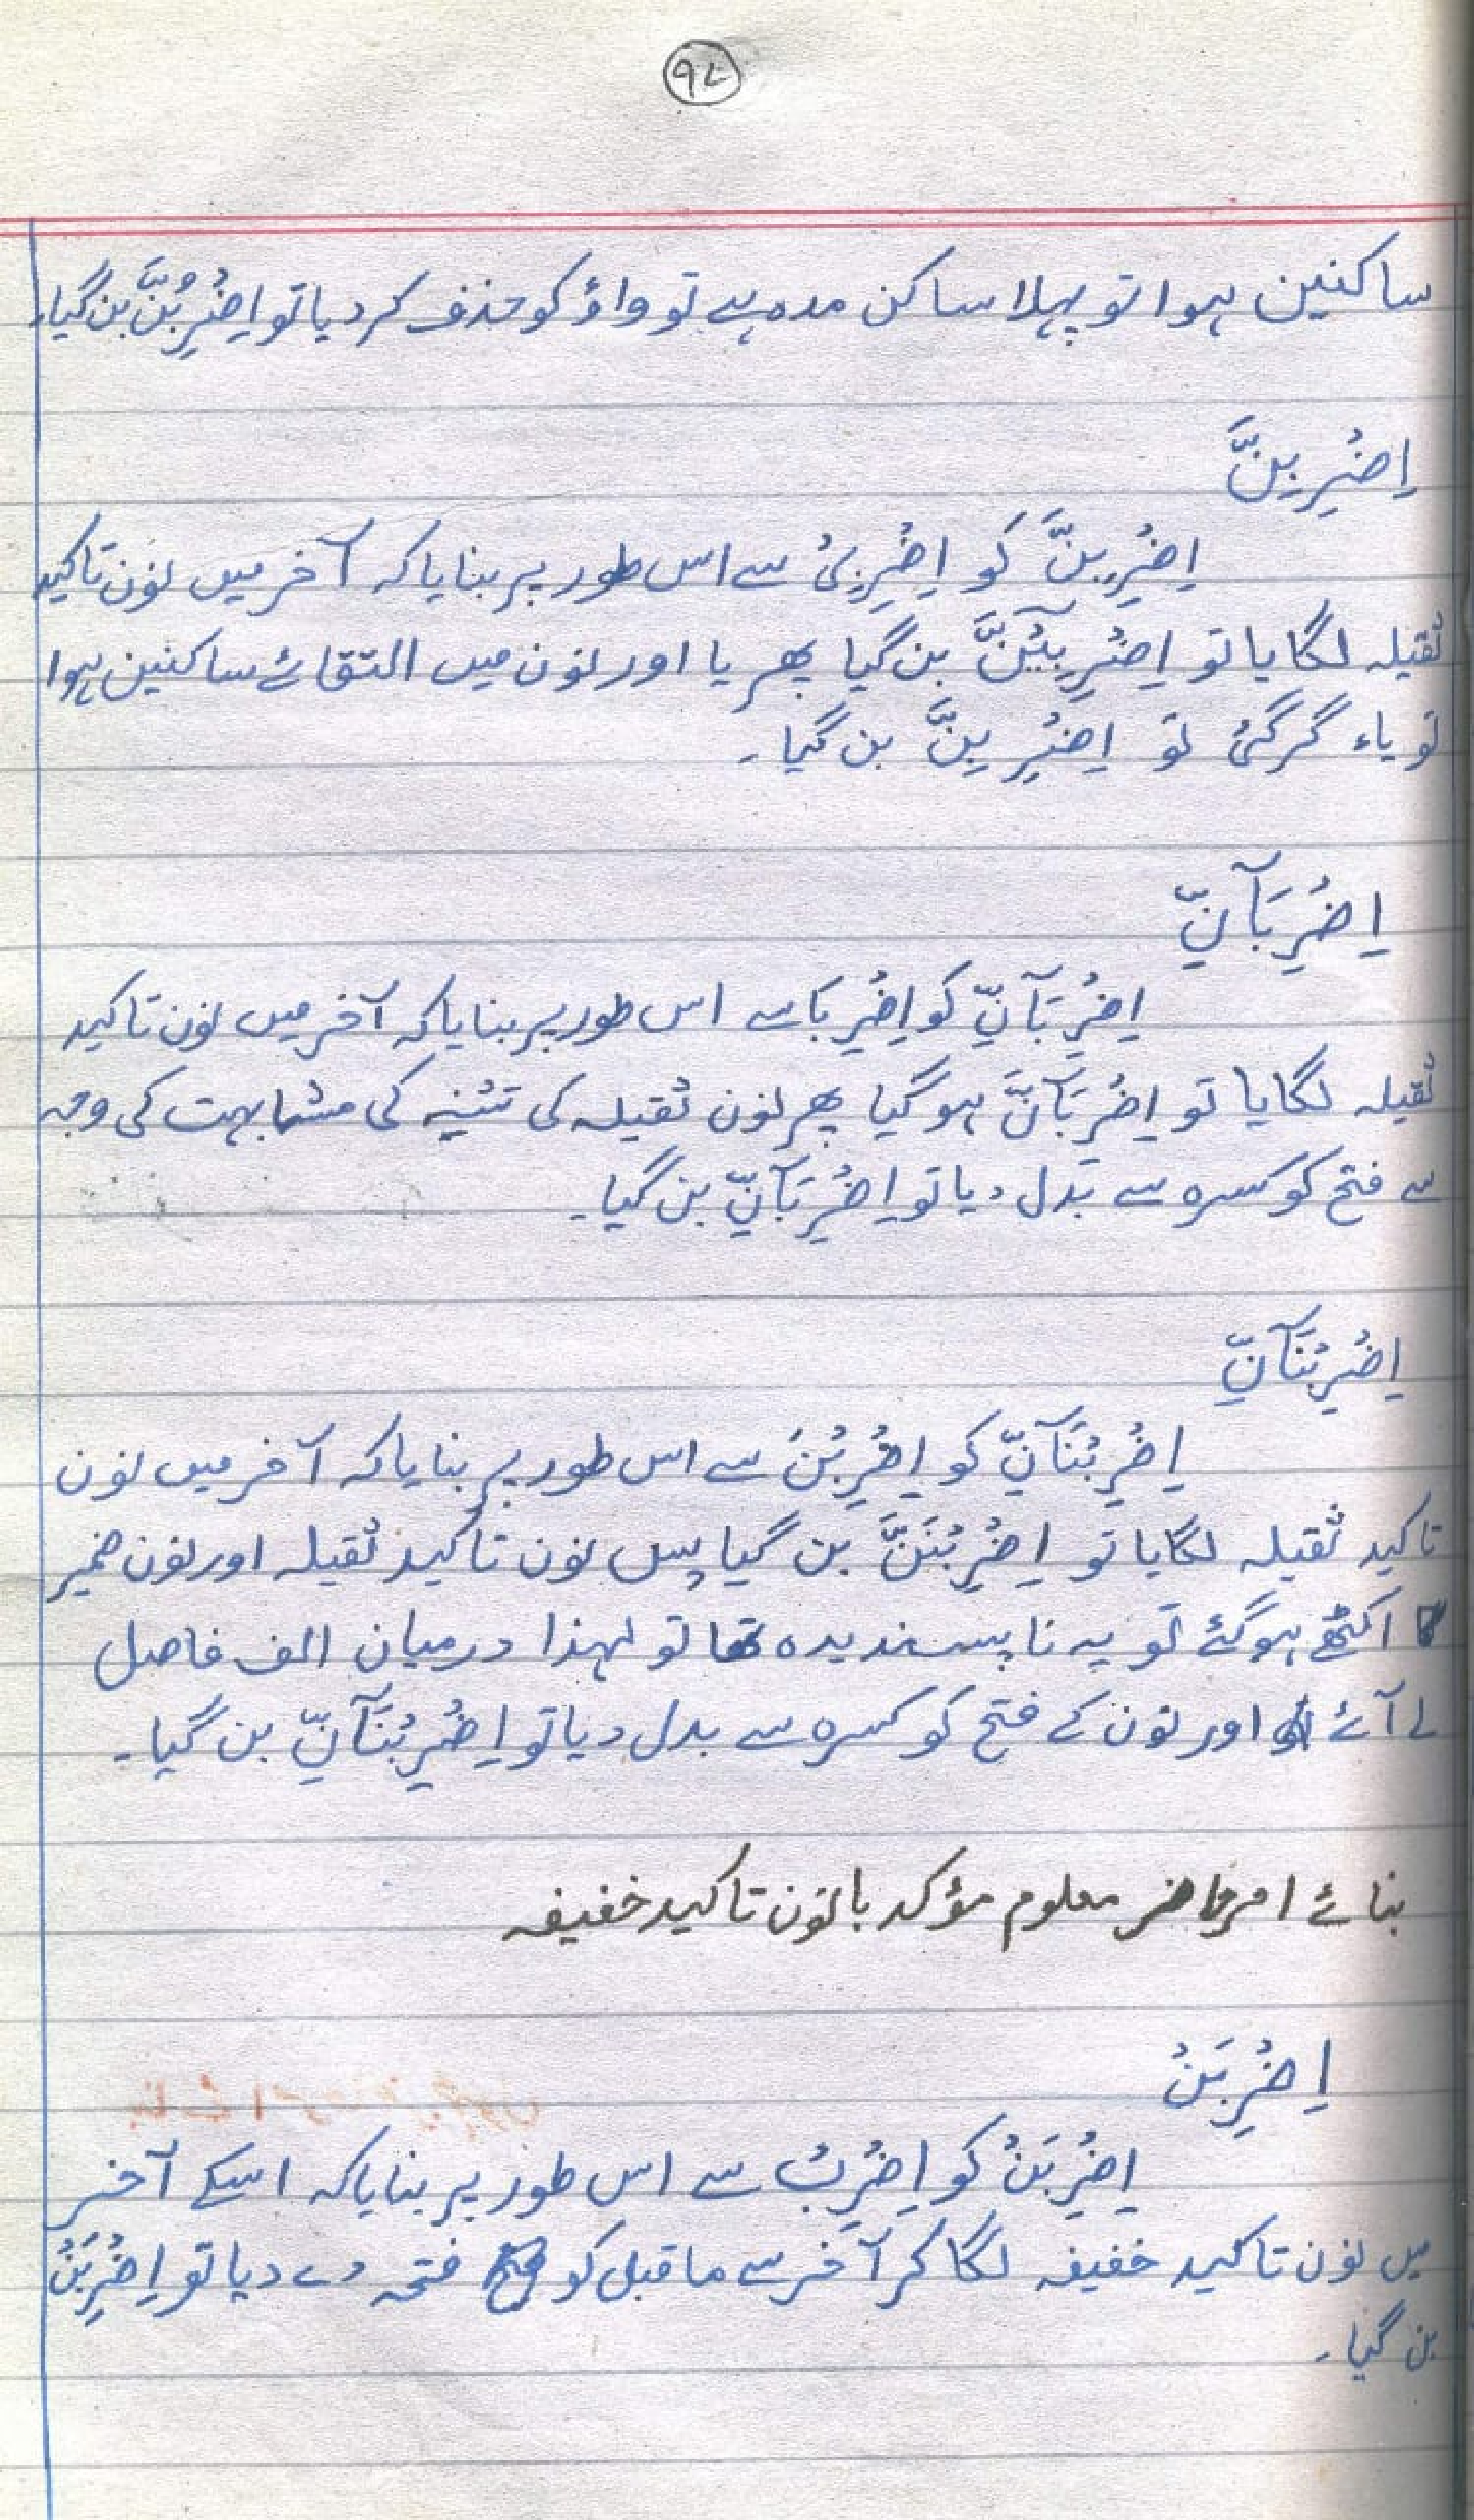 ۹۷
ساکنین ہوا تو پہلا ساکن مدہ ہے تو واؤ کو حذف کر دیا تو اِضْرِبُنَّ بن گیا۔
اِضْرِبِنَّ
اِضْرِبِنَّ کو اِضْرِبِیْ سے اس طور پر بنایا کہ آخر میں نون تاکید
ثقیلہ لگایا تو اِضْرِبِیْنَّ بن گیا پھر یا اور نون میں التقائے ساکنین ہوا
تو یاء گر گئی تو اِضْرِبِنَّ بن گیا۔
اِضْرِبَآنِّ
اِضْرِبَآنِّ کو اِضْرِبَا سے اس طور پر بنایا کہ آخر میں نون تاکید
ثقیلہ لگایا تو اِضْرِبَآنَّ ہو گیا پھر نون ثقیلہ کی تثنیہ کی مشابہت کی وجہ
سے فتح کو کسرہ سے بدل دیا تو اِضْرِبَآنِّ بن گیا۔
اِضْرِبْنَآنِّ
اِضْرِبْنَآنِّ کو اِضْرِبْنَ سے اس طور پر بنایا کہ آخر میں نون
تاکید ثقیلہ لگایا تو اِضْرِبْنَنَّ بن گیا پس نون تاکید ثقیلہ اور نون ضمیر
اکٹھے ہو گئے تو یہ ناپسندیدہ تھا تو لہذا درمیان الف فاصل
لے آئے اور نون کے فتح کو کسرہ سے بدل دیا تو اِضْرِبْنَآنِّ بن گیا۔
بنائے امر حاضر معلوم مؤکد بانون تاکید خفیفہ
اِضْرِبَنْ
اِضْرِبَنْ کو اِضْرِبْ سے اس طور پر بنایا کہ اسکے آخر
میں نون تاکید خفیفہ لگا کر آخر سے ماقبل کو فتحہ دے دیا تو اِضْرِبَنْ
بن گیا۔